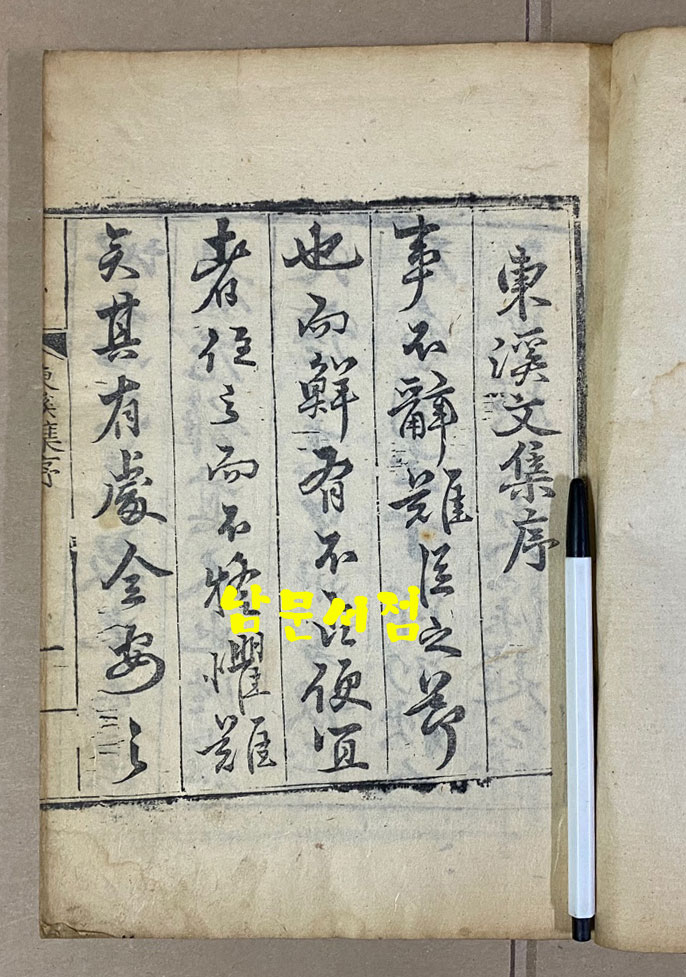 東溪文集序
事不辭難臣之節
也而鮮有不便宜
者任之而不懼難
矣其有處全安之
東溪集序
一
남문서점